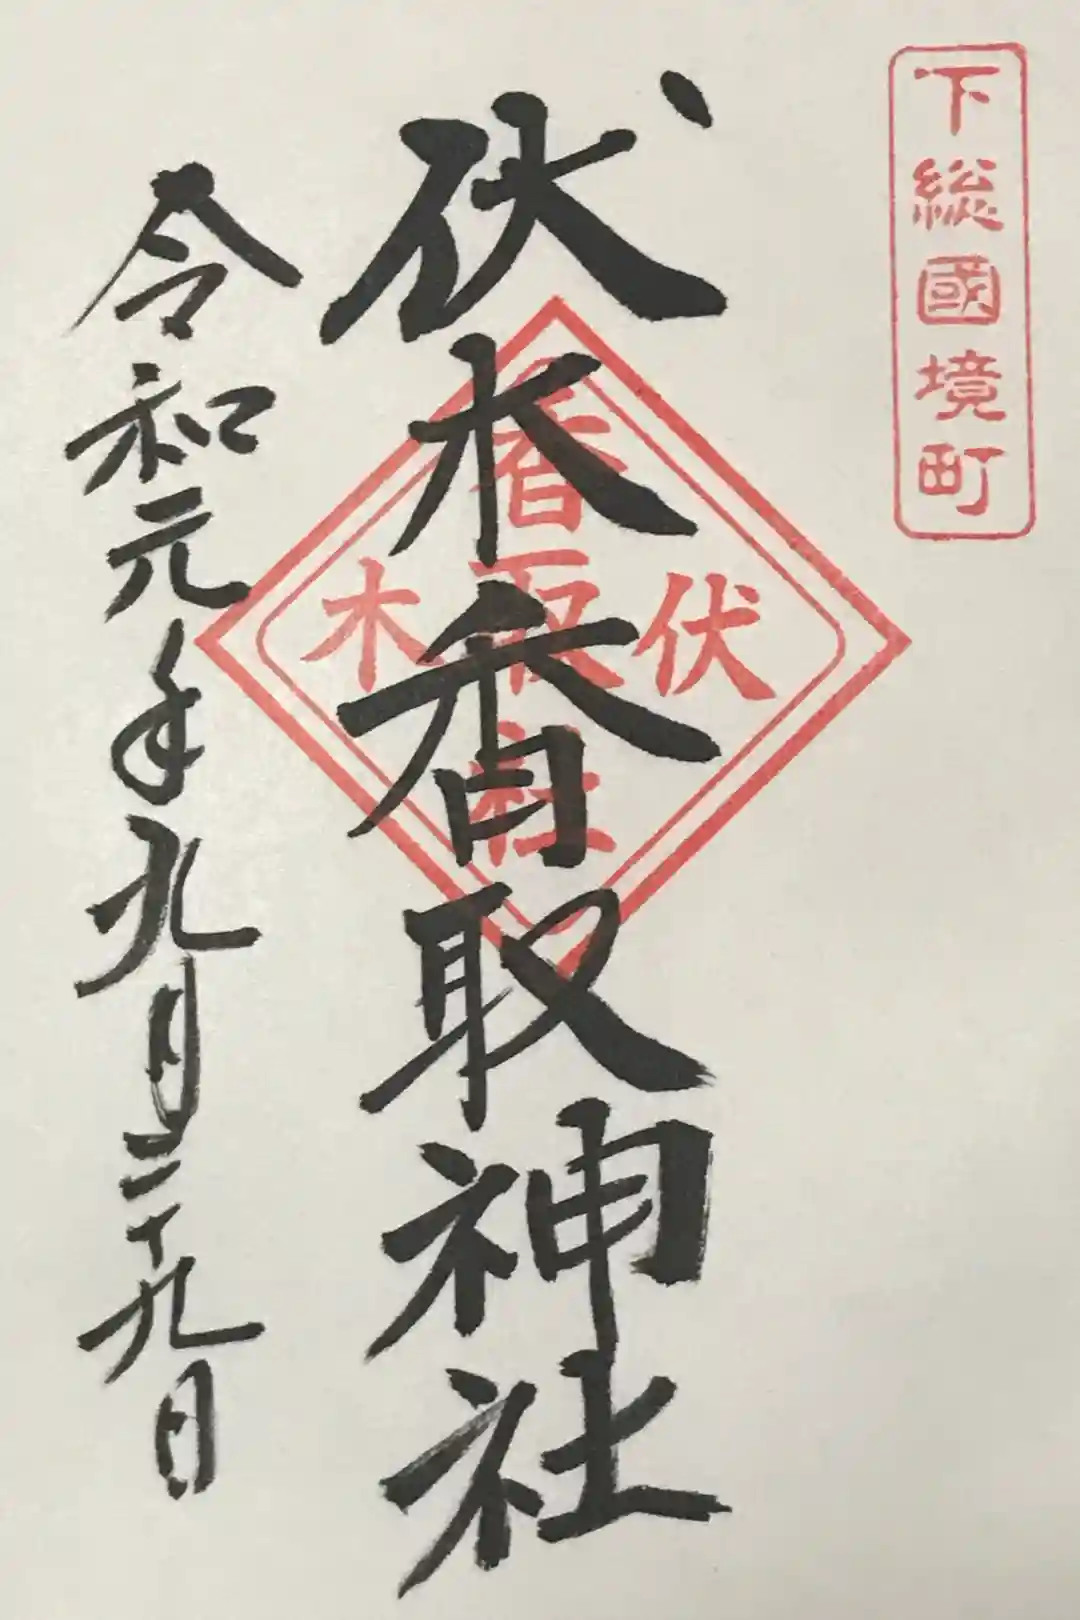 下総國境町
伏木香取神社
伏木
香取社
令和元年九月二十九日